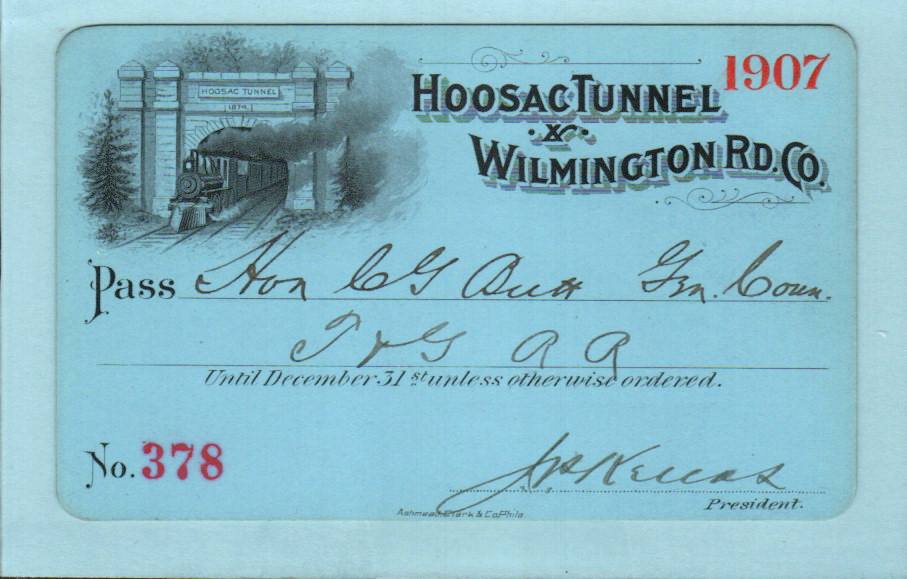 HOOSAC TUNNEL
1874.
1907
HOOSAC TUNNEL
&
WILMINGTON RD. CO.
Pass Hon C G Butt Gen. Coun.
T & G R R
Until December 31st unless otherwise ordered.
No. 378
President.
Ashmead, Clark & Co Phila